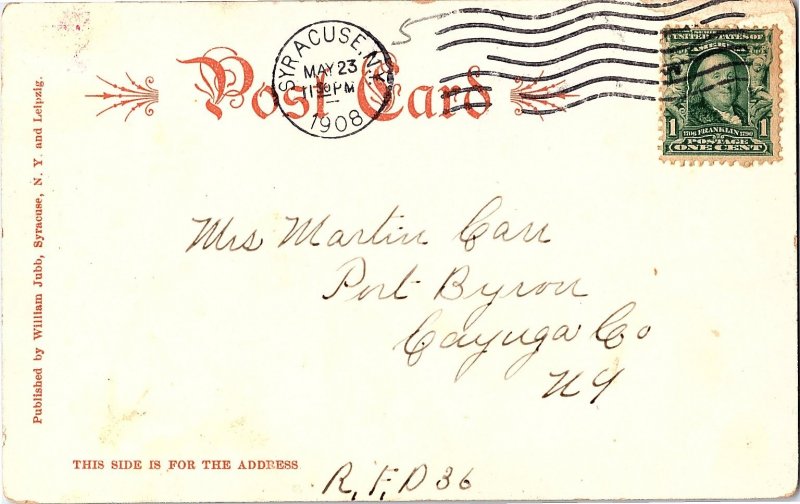 SYRACUSE, N.Y.
MAY 23
1908
Post Card
UNITED STATES OF
AMERICA
1706 FRANKLIN 1790
1 POSTAGE 1
ONE CENT
Published by William Jubb, Syracuse, N. Y. and Leipzig.
Mrs Martin Carr
Port Byron
Cayuga Co
NY
THIS SIDE IS FOR THE ADDRESS
R, F, D 36